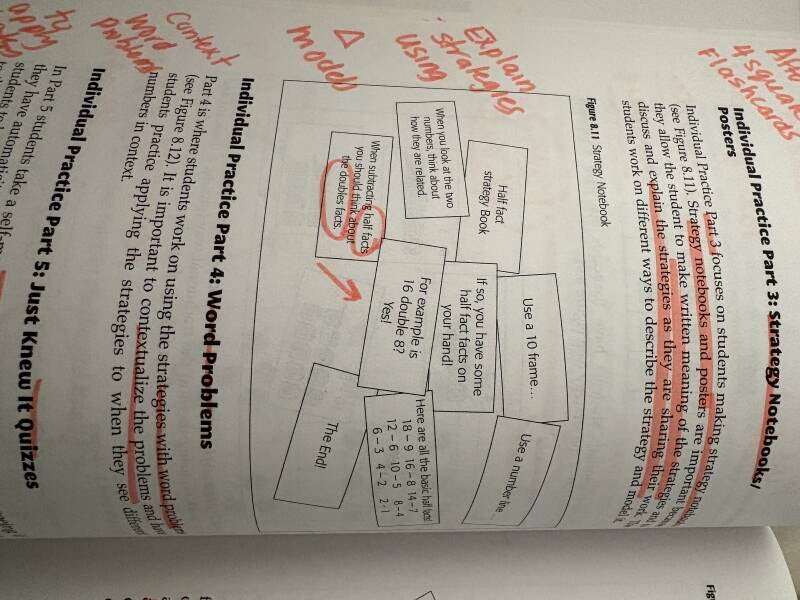 Also
4 square
Flashcards
Individual Practice Part 3: Strategy Notebooks/
Posters
Individual Practice Part 3 focuses on students making strategy
(see Figure 8.11). Strategy notebooks and posters are important
they allow the student to make written meaning of the strategies
discuss and explain the strategies as they are sharing their work.
students work on different ways to describe the strategy and model it.
Explain
strategies
using
models
Figure 8.11 Strategy Notebook
Half fact
strategy Book
When you look at the two
numbers, think about
how they are related.
When subtracting half facts
you should think about
the doubles facts.
Use a 10 frame...
If so, you have some
half fact facts on
your hand!
For example is
16 double 8?
Yes!
Use a number line
Here are all the basic half facts!
18 – 9 16 – 8 14 – 7
12 – 6 10 – 5 8 – 4
6 – 3 4 – 2 2 - 1
The End!
Context
word
problems
Individual Practice Part 4: Word Problems
Part 4 is where students work on using the strategies with word problems
(see Figure 8.12). It is important to contextualize the problems and
students practice applying the strategies to when they see
numbers in context.
apply
Individual Practice Part 5: Just Knew It Quizzes
In Part 5 students
they have automatic
students take a